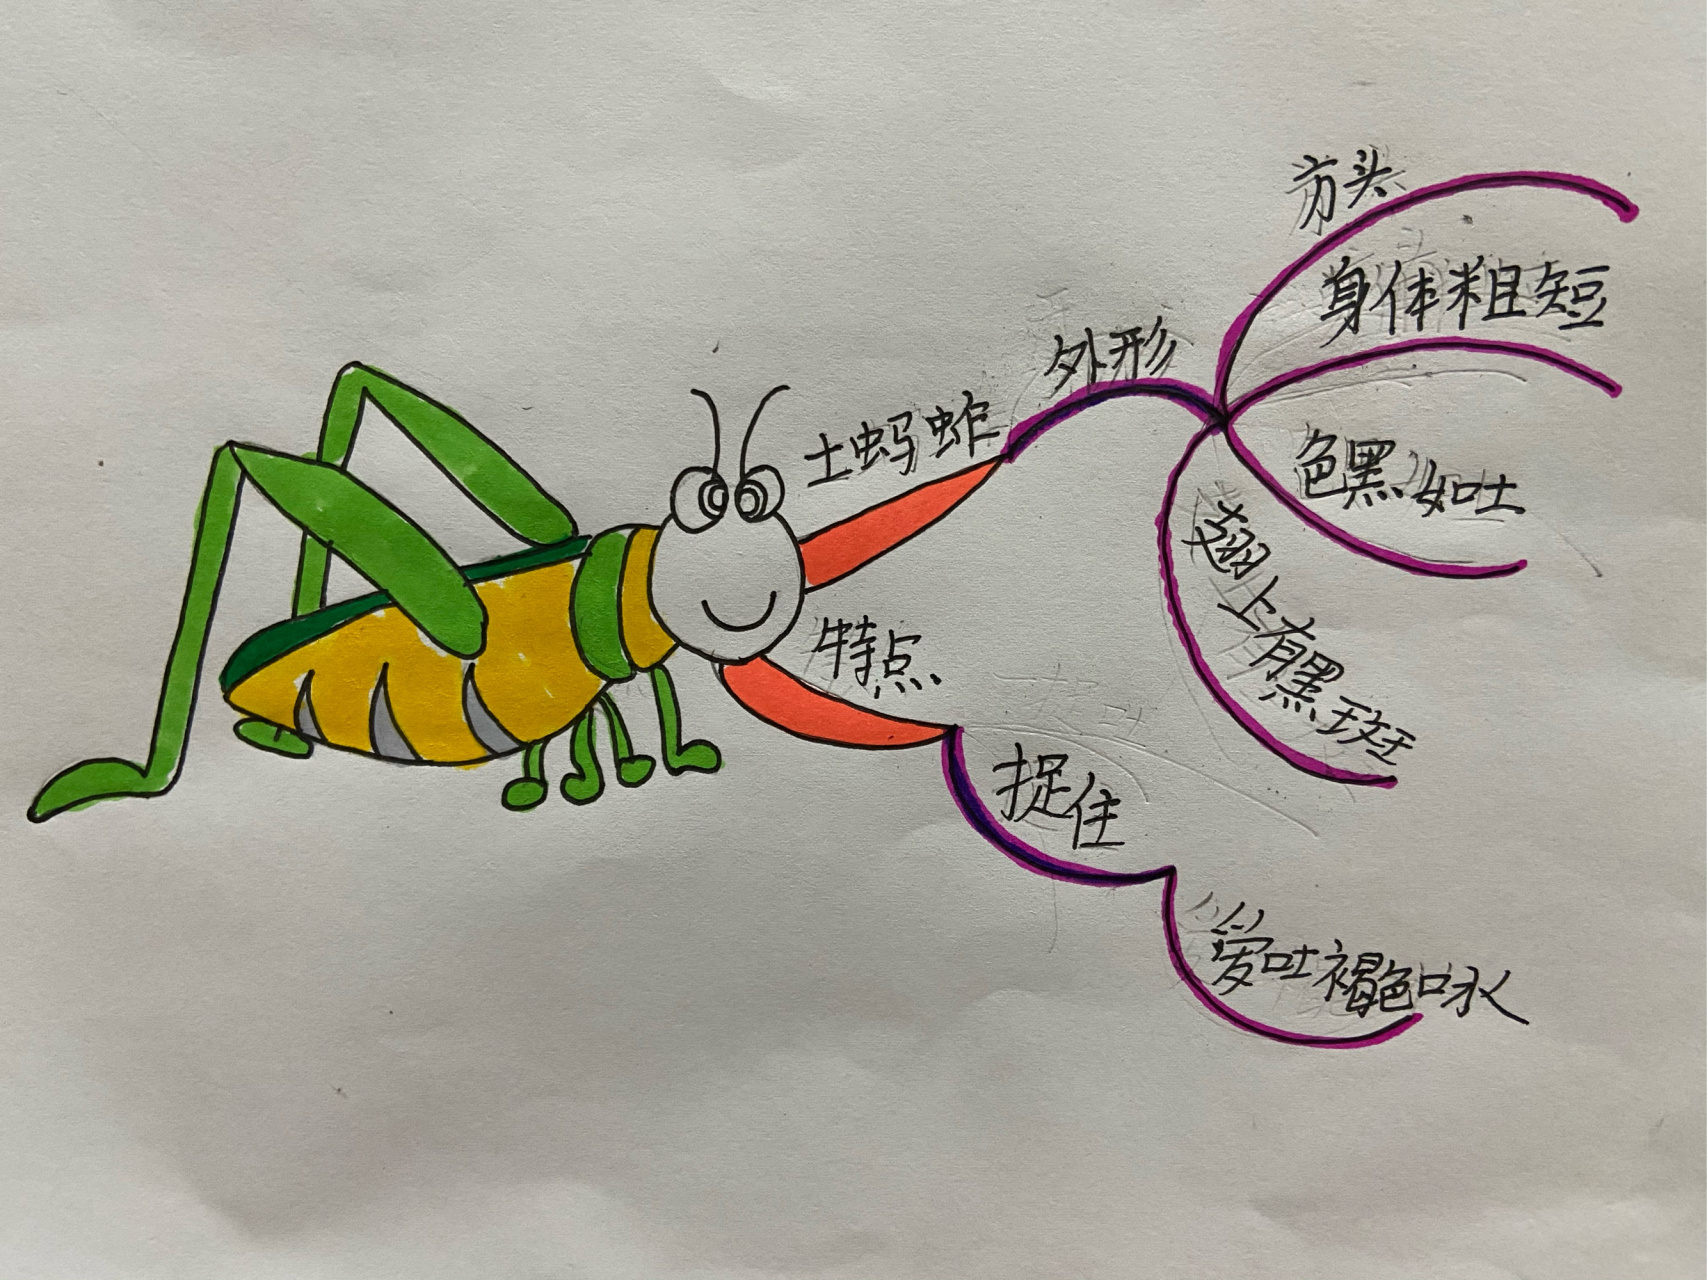 土蚂蚱
外形
方头
身体粗短
色黑如吐
翅上有黑斑
特点
捉住
爱吐褐色口水